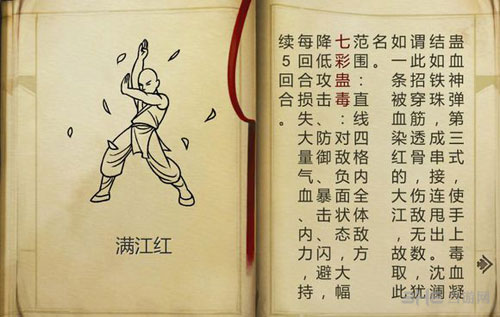 满江红
蛊血神弹第三式,使手上毒血凝
结如铁珠,成串接连甩出。沈澜
谓此招穿筋透骨,伤敌无数,犹
如一条被血染红的大江,故取此
名。
范围:直线四格内全体敌方
七彩蛊毒:对敌负面状态,大幅
降低攻击、防御、暴击、闪避,
每回合损失大量气血、内力,持
续5回合。